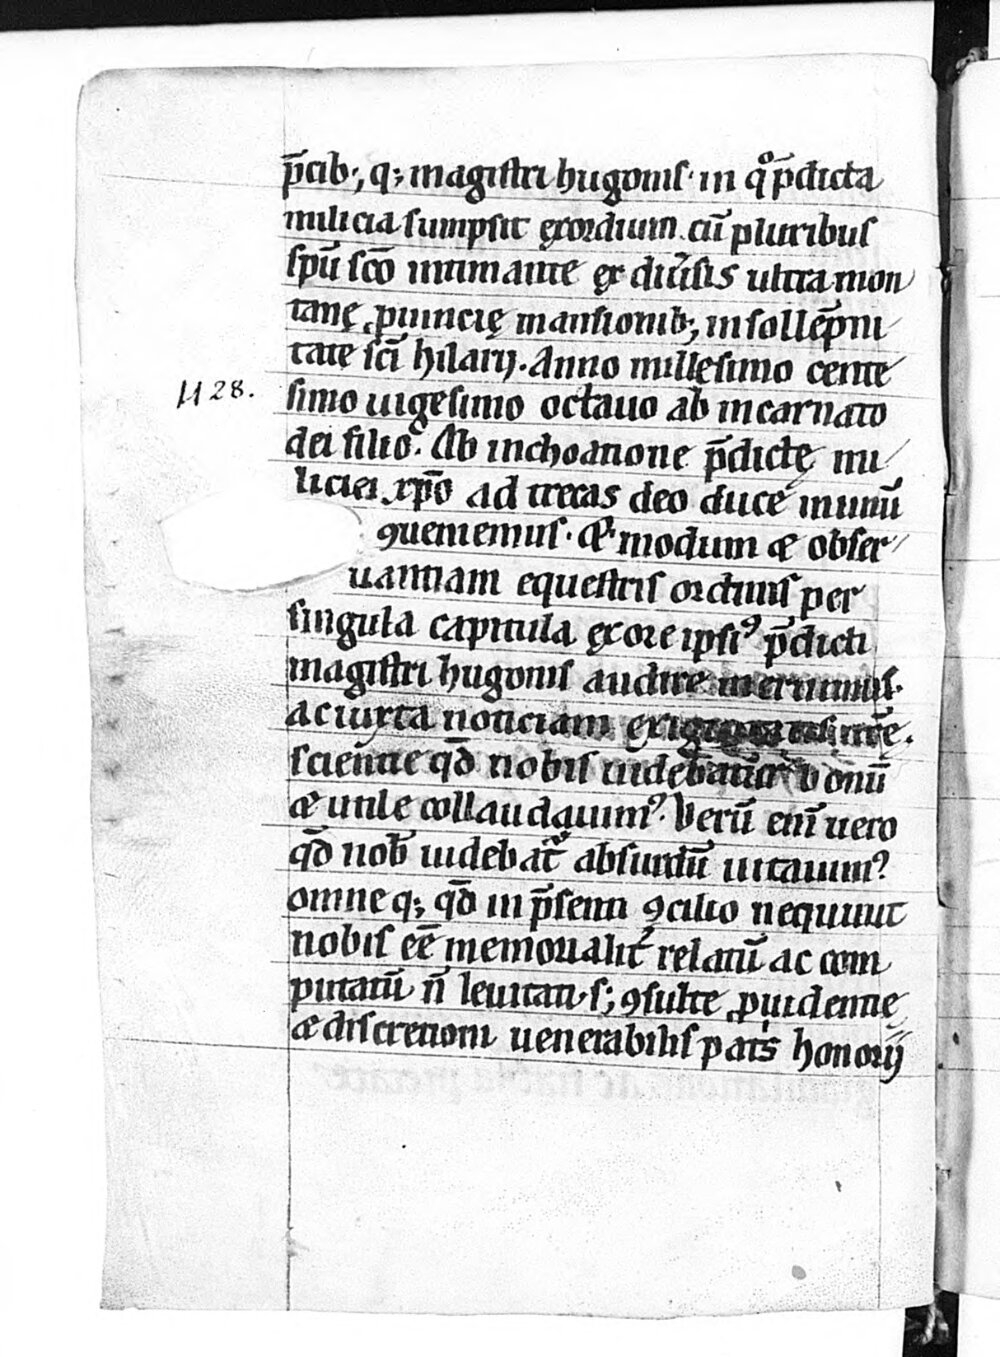 p̄cib;, q; magistri hugonis· in q̊ p̄dicta
milicia sumpsit ęxordium. cū pluribus
sp̄u sc̄o intimante ex diuersis ultramon
tanę ꝓuincię mansionib;, in sollēpni
tate sc̄i hilarij. Anno millesimo cente
1128.
simo uigesimo octauo ab incarnato
dei filio. Ab inchoatione p̄dictę mi
liciei, xp̄o ad trecas deo duce in unū
ꝯuenemus. Et modum & obser
uantiam equestris ordinis per
singula capitula ex ore ipsiꝰ p̄dicti
magistri hugonis audire meruimus.
ac iuxta noticiam exiguitatis nr̄e.
scientie qd̄ nobis uidebatur bonū
& utile collaudauimꝰ. Verū eni̅ uero
qd̄ nob̄ uidebat̄ absurdū uitauimꝰ
omne q; qd̄ in p̄senti ꝯcilio nequiuit
nobis eē memorialit̄ relatū ac com
putatū n̄ leuitati s; ꝯsulte ꝓuidentie
& discretioni uenerabilis patris honorij